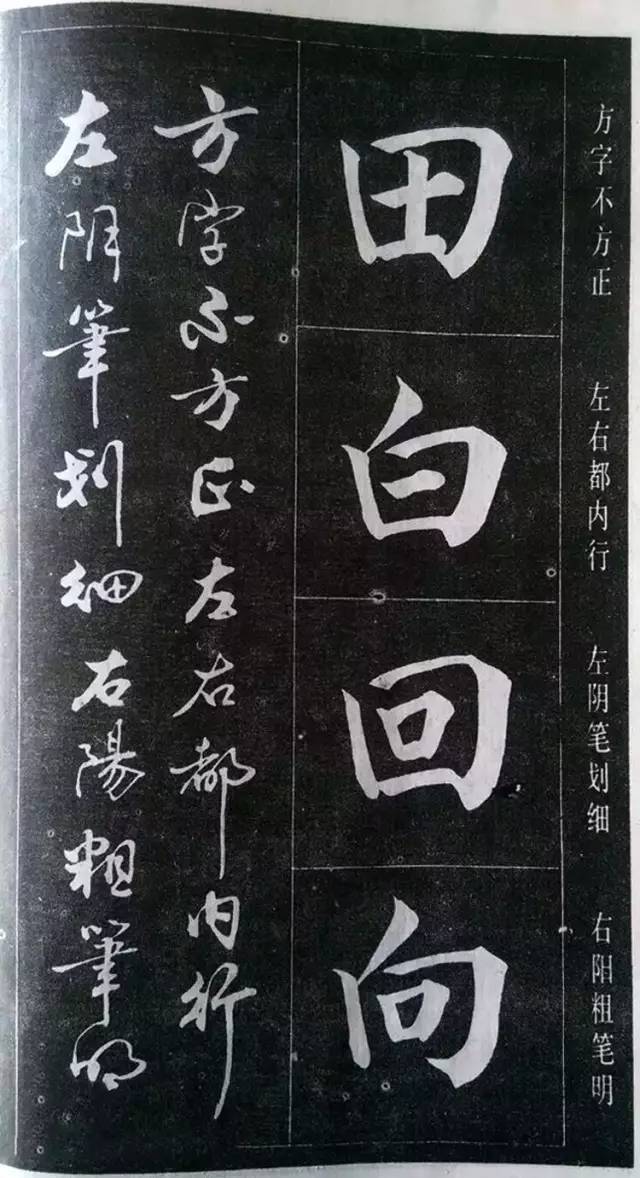 方字不方正 左右都内行 左阴笔划细 右阳粗笔明
田
白
回
向
方字不方正左右都内行
左阴筆划细右陽粗筆明